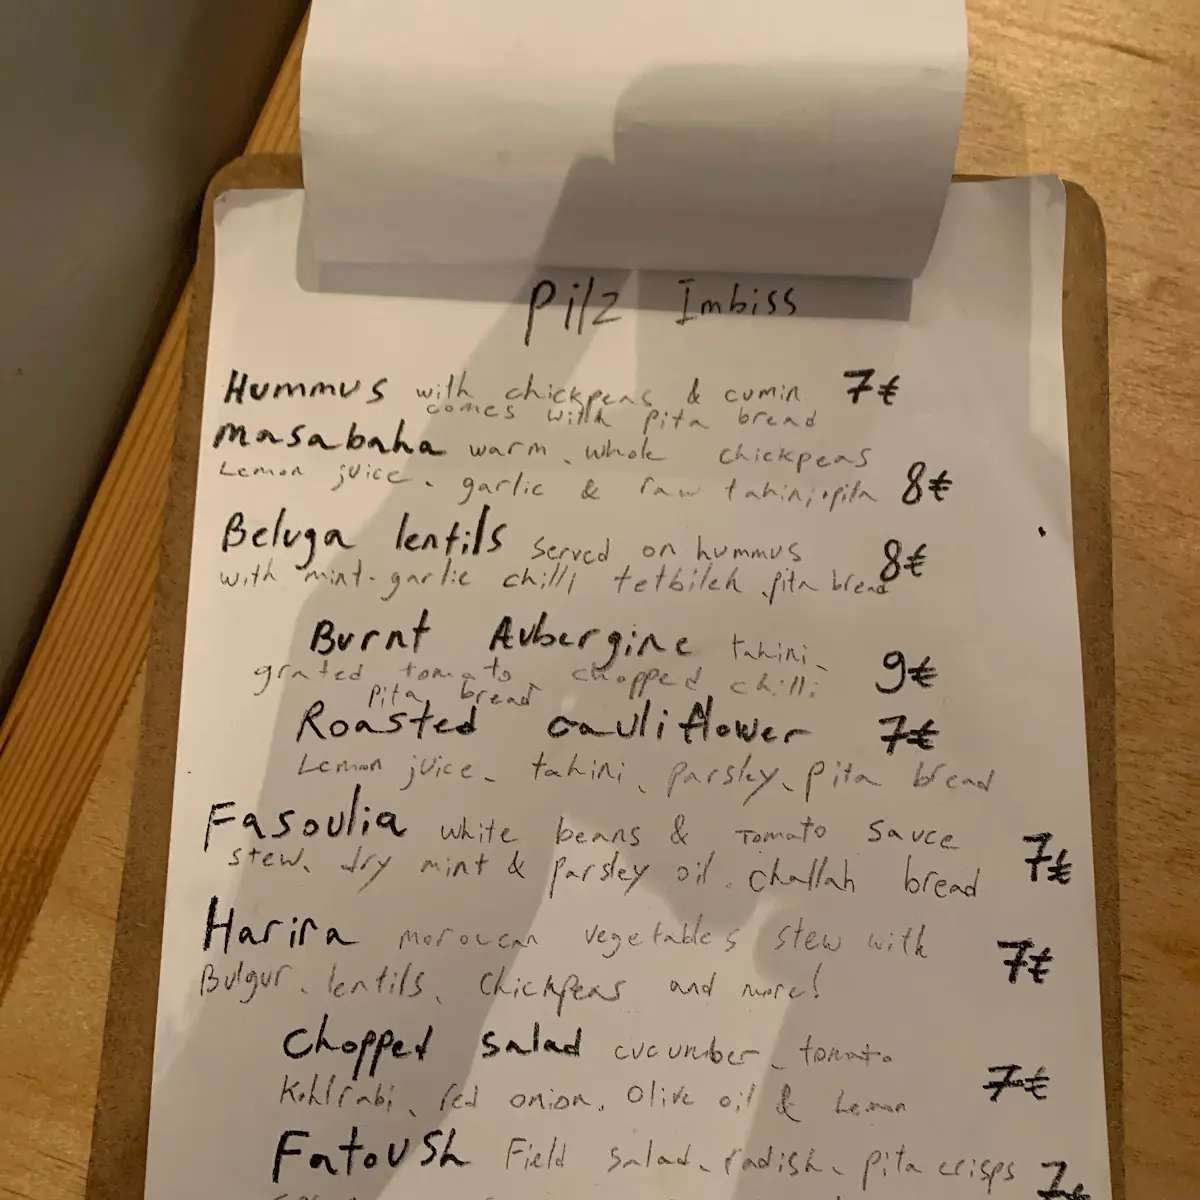 Pilz Imbiss
Hummus with chickpeas & cumin 7€
comes with pita bread
Masabaha warm, whole chickpeas
Lemon juice, garlic & raw tahini, pita 8€
Beluga lentils served on hummus 8€
with mint-garlic chilli tetbileh, pita bread
Burnt Aubergine tahini,
grated tomato, chopped chilli 9€
pita bread
Roasted cauliflower 7€
Lemon juice, tahini, parsley, pita bread
Fasoulia white beans & Tomato sauce
stew, dry mint & parsley oil, challah bread 7€
Harira morocan vegetables stew with
Bulgur, lentils, chickpeas and more! 7€
Chopped salad cucumber, tomato
Kohlrabi, red onion, olive oil & Lemon 7€
Fatoush Field salad, radish, pita crisps